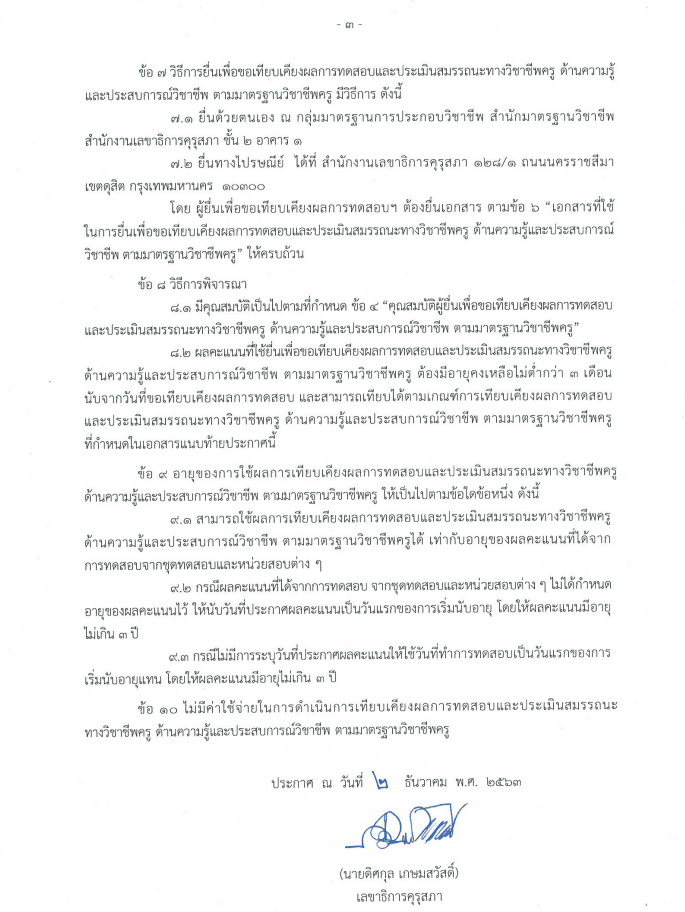 - ๓ -
ข้อ ๗ วิธีการยื่นเพื่อขอเทียบเคียงผลการทดสอบและประเมินสมรรถนะทางวิชาชีพครู ด้านความรู้
และประสบการณ์วิชาชีพ ตามมาตรฐานวิชาชีพครู มีวิธีการ ดังนี้
๗.๑ ยื่นด้วยตนเอง ณ กลุ่มมาตรฐานการประกอบวิชาชีพ สำนักมาตรฐานวิชาชีพ
สำนักงานเลขาธิการคุรุสภา ชั้น ๒ อาคาร ๑
๗.๒ ยื่นทางไปรษณีย์ ได้ที่ สำนักงานเลขาธิการคุรุสภา ๑๒๘/๑ ถนนนครราชสีมา
เขตดุสิต กรุงเทพมหานคร ๑๐๓๐๐
โดย ผู้ยื่นเพื่อขอเทียบเคียงผลการทดสอบฯ ต้องยื่นเอกสาร ตามข้อ ๖ “เอกสารที่ใช้
ในการยื่นเพื่อขอเทียบเคียงผลการทดสอบและประเมินสมรรถนะทางวิชาชีพครู ด้านความรู้และประสบการณ์
วิชาชีพ ตามมาตรฐานวิชาชีพครู” ให้ครบถ้วน
ข้อ ๘ วิธีการพิจารณา
๘.๑ มีคุณสมบัติเป็นไปตามที่กำหนด ข้อ ๔ “คุณสมบัติผู้ยื่นเพื่อขอเทียบเคียงผลการทดสอบ
และประเมินสมรรถนะทางวิชาชีพครู ด้านความรู้และประสบการณ์วิชาชีพ ตามมาตรฐานวิชาชีพครู”
๘.๒ ผลคะแนนที่ใช้ยื่นเพื่อขอเทียบเคียงผลการทดสอบและประเมินสมรรถนะทางวิชาชีพครู
ด้านความรู้และประสบการณ์วิชาชีพ ตามมาตรฐานวิชาชีพครู ต้องมีอายุคงเหลือไม่ต่ำกว่า ๓ เดือน
นับจากวันที่ขอเทียบเคียงผลการทดสอบ และสามารถเทียบได้ตามเกณฑ์การเทียบเคียงผลการทดสอบ
และประเมินสมรรถนะทางวิชาชีพครู ด้านความรู้และประสบการณ์วิชาชีพ ตามมาตรฐานวิชาชีพครู
ที่กำหนดในเอกสารแนบท้ายประกาศนี้
ข้อ ๙ อายุของการใช้ผลการเทียบเคียงผลการทดสอบและประเมินสมรรถนะทางวิชาชีพครู
ด้านความรู้และประสบการณ์วิชาชีพ ตามมาตรฐานวิชาชีพครู ให้เป็นไปตามข้อใดข้อหนึ่ง ดังนี้
๙.๑ สามารถใช้ผลการเทียบเคียงผลการทดสอบและประเมินสมรรถนะทางวิชาชีพครู
ด้านความรู้และประสบการณ์วิชาชีพ ตามมาตรฐานวิชาชีพครูได้ เท่ากับอายุของผลคะแนนที่ได้จาก
การทดสอบจากชุดทดสอบและหน่วยสอบต่าง ๆ
๙.๒ กรณีผลคะแนนที่ได้จากการทดสอบ จากชุดทดสอบและหน่วยสอบต่าง ๆ ไม่ได้กำหนด
อายุของผลคะแนนไว้ ให้นับวันที่ประกาศผลคะแนนเป็นวันแรกของการเริ่มนับอายุ โดยให้ผลคะแนนมีอายุ
ไม่เกิน ๓ ปี
๙.๓ กรณีไม่มีการระบุวันที่ประกาศผลคะแนนให้ใช้วันที่ทำการทดสอบเป็นวันแรกของการ
เริ่มนับอายุแทน โดยให้ผลคะแนนมีอายุไม่เกิน ๓ ปี
ข้อ ๑๐ ไม่มีค่าใช้จ่ายในการดำเนินการเทียบเคียงผลการทดสอบและประเมินสมรรถนะ
ทางวิชาชีพครู ด้านความรู้และประสบการณ์วิชาชีพ ตามมาตรฐานวิชาชีพครู
ประกาศ ณ วันที่ ๒ ธันวาคม พ.ศ. ๒๕๖๓
(นายดิศกุล เกษมสวัสดิ์)
เลขาธิการคุรุสภา